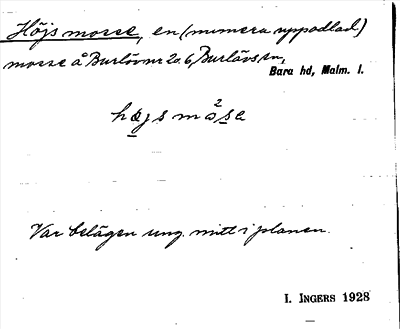 Höjs mosse, en (numera uppodlad)
mosse å Burlöv nr 2 o. 6, Burlövs sn,
Bara hd, Malm. l.
højs måse
2
Var belägen ung. mitt i planen.
I. INGERS 1928